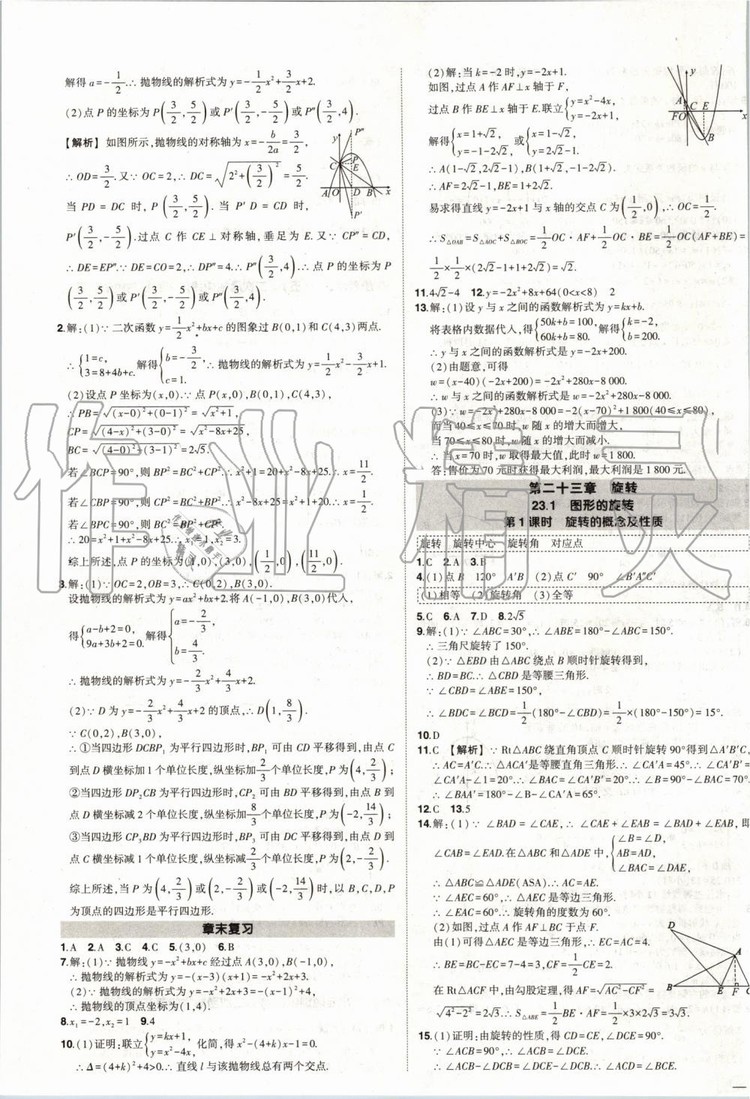 解得a=-1/2.∴抛物线的解析式为y=-1/2x²+3/2x+2.
(2)点P的坐标为P(3/2,5/2)或P'(3/2,-5/2)或P''(3/2,4).
【解析】如图所示,抛物线的对称轴为x=-b/2a=3/2.
∴OD=3/2.又∵OC=2,∴DC=√(2²+(3/2)²)=5/2.
当PD=DC时,P(3/2,5/2).当P'D=CD时,
P'(3/2,-5/2).过点C作CE⊥对称轴,垂足为E.又∵CP''=CD,
∴DE=EP''.∵DE=CO=2,∴DP''=4.∴P''(3/2,4).∴点P的坐标为
P(3/2,5/2)或P'(3/2,-5/2)或P''(3/2,4).
2.解:(1)∵二次函数y=1/2x²+bx+c的图象过B(0,1)和C(4,3)两点.
∴{1=c, 3=8+4b+c. 解得{b=-3/2, c=1. ∴抛物线的解析式为y=1/2x²-3/2x+1.
(2)设点P坐标为(x,0).∵点P(x,0),B(0,1),C(4,3),
∴PB=√((x-0)²+(0-1)²)=√(x²+1),
CP=√((4-x)²+(3-0)²)=√(x²-8x+25),
BC=√((4-0)²+(3-1)²)=2√5.
若∠BPC=90°,则BP²=BC²+CP².∴x²+1+20=x²-8x+25.∴x=1/2.
综上所述,点P坐标为(1,0),(3,0),(1/2,0),(11/2,0).
3.解:(1)∵OC=2,OB=3,∴C(0,2),B(3,0).
设抛物线的解析式为y=ax²+bx+2.将A(-1,0),B(3,0)代入,
得{a-b+2=0, 9a+3b+2=0. 解得{a=-2/3, b=4/3.
∴抛物线的解析式为y=-2/3x²+4/3x+2.
(2)∵D为y=-2/3x²+4/3x+2的顶点,∴D(1,8/3).
∵C(0,2),B(3,0),
∴①当四边形DCBP₁为平行四边形时,BP₁可由CD平移得到,由点C
到点D横坐标加1个单位,纵坐标加2/3个单位,P为(4,2/3);
②当四边形DP₂CB为平行四边形时,CP₂可由DB平移得到,由点B到
点D横坐标减2个单位,纵坐标加8/3个单位,P为(-2,14/3);
③当四边形CP₃BD为平行四边形时,BP₃可由DC平移得到,由点D到
点C横坐标减1个单位,纵坐标减2/3个单位,P为(2,-2/3).
综上所述,当P为(4,2/3)或(2,-2/3)或(-2,14/3)时,以B,C,D,P
为顶点的四边形是平行四边形.
章末复习
1.A 2.A 3.A 4.C 5.(3,0) 6.B
7.解:(1)∵抛物线y=-x²+bx+c经过点A(3,0),B(-1,0),
∴抛物线的解析式为y=-(x-3)(x+1)=-x²+2x+3.
(2)∵抛物线的解析式为y=-x²+2x+3=-(x-1)²+4,
∴抛物线的顶点坐标为(1,4).
8.x₁=-2,x₂=1 9.4
10.(1)证明:联立{y=kx+1, y=x²-4x, 化简,得x²-(4+k)x-1=0.
∴Δ=(4+k)²+4>0.∴直线l与该抛物线总有两个交点.
(2)解:当k=-2时,y=-2x+1.
如图,过点A作AF⊥x轴于F,
过点B作BE⊥x轴于E.联立{y=x²-4x, y=-2x+1,
解得{x=1+√2, y=-1-2√2, 或{x=1-√2, y=2√2-1.
∴A(1-√2,2√2-1),B(1+√2,-1-2√2).
∴AF=2√2-1,BE=1+2√2.
易求得直线y=-2x+1与x轴的交点C为(1/2,0),∴OC=1/2.
∴S△OAB=S△AOC+S△BOC=1/2OC·AF+1/2OC·BE=1/2OC(AF+BE)=
1/2×1/2×(2√2-1+1+2√2)=√2.
11.4√2-4 12.y=-2x²+8x+64(0<x<8) 2
13.解:(1)设y与x之间的函数解析式为y=kx+b.
将表格内数据代入,得{50k+b=100, 60k+b=80. 解得{k=-2, b=200.
∴y与x之间的函数解析式是y=-2x+200.
(2)由题意,可得
w=(x-40)(-2x+200)=-2x²+280x-8 000.
∴w与x之间的函数解析式是w=-2x²+280x-8 000.
(3)∵w=-2x²+280x-8 000=-2(x-70)²+1 800(40≤x≤80),
∴当40≤x≤70时,w随x的增大而增大,
当70≤x≤80时,w随x的增大而减小.
∴当x=70时,w取得最大值,此时w=1 800.
答:售价为70元时获得最大利润,最大利润是1 800元.
第二十三章 旋转
23.1 图形的旋转
第1课时 旋转的概念及性质
旋转 旋转中心 旋转角 对应点
1.C 2.A 3.B
4.(1)点B 120° A'B (2)点C' 90° ∠B'A'C'
(1)相等 (2)旋转角 (3)全等
5.C 6.A 7.D 8.2√5
9.解:(1)∵∠ABC=30°,∴∠ABE=180°-∠ABC=150°.
∴三角尺旋转了150°.
(2)∵△EBD由△ABC绕点B顺时针旋转得到,
∴BD=BC.∴△CBD是等腰三角形.
∵∠CBD=∠ABE=150°.
∴∠BDC=∠BCD=1/2(180°-∠CBD)=1/2(180°-150°)=15°.
10.D
11.C 【解析】∵Rt△ABC绕直角顶点C顺时针旋转90°得到△A'B'C,
∴AC=A'C.∴△ACA'是等腰直角三角形.∴∠CAA'=∠CA'A=45°.
∠CA'A-∠1=20°=∠BAC.∴∠BAC=∠CA'B'=20°.∴∠BAA'=70°
∴∠BAA'=180°-70°-45°=65°.
12.C 13.5
14.解:(1)∵∠BAD=∠CAE,∴∠CAE+∠EAB=∠BAD+∠EAB,即
∠CAB=∠EAD.在△ABC和△ADE中,{∠B=∠D, AB=AD, ∠BAC=∠DAE,
∴△ABC≌△ADE(ASA).∴AC=AE.
∵∠AEC=60°,∴△ACE是等边三角形.
∴∠EAC=60°.∴旋转角的度数为60°.
(2)如图,过点A作AF⊥BC于点F.
由(1)可得△AEC是等边三角形,∴EC=AC=4.
∴BE=BC-EC=7-4=3,CF=1/2CE=2.
在Rt△ACF中,由勾股定理,得AF=√(AC²-CF²)=
√(4²-2²)=2√3.∴S△ABE=1/2BE·AF=1/2×3×2√3=3√3.
15.(1)证明:由旋转的性质,得CD=CE,∠DCE=90°.
∵∠ACB=90°,∴∠ACB=∠DCE.
∴∠ACB-∠DCB=∠DCE-∠DCB.∴∠ACD=∠BCE.